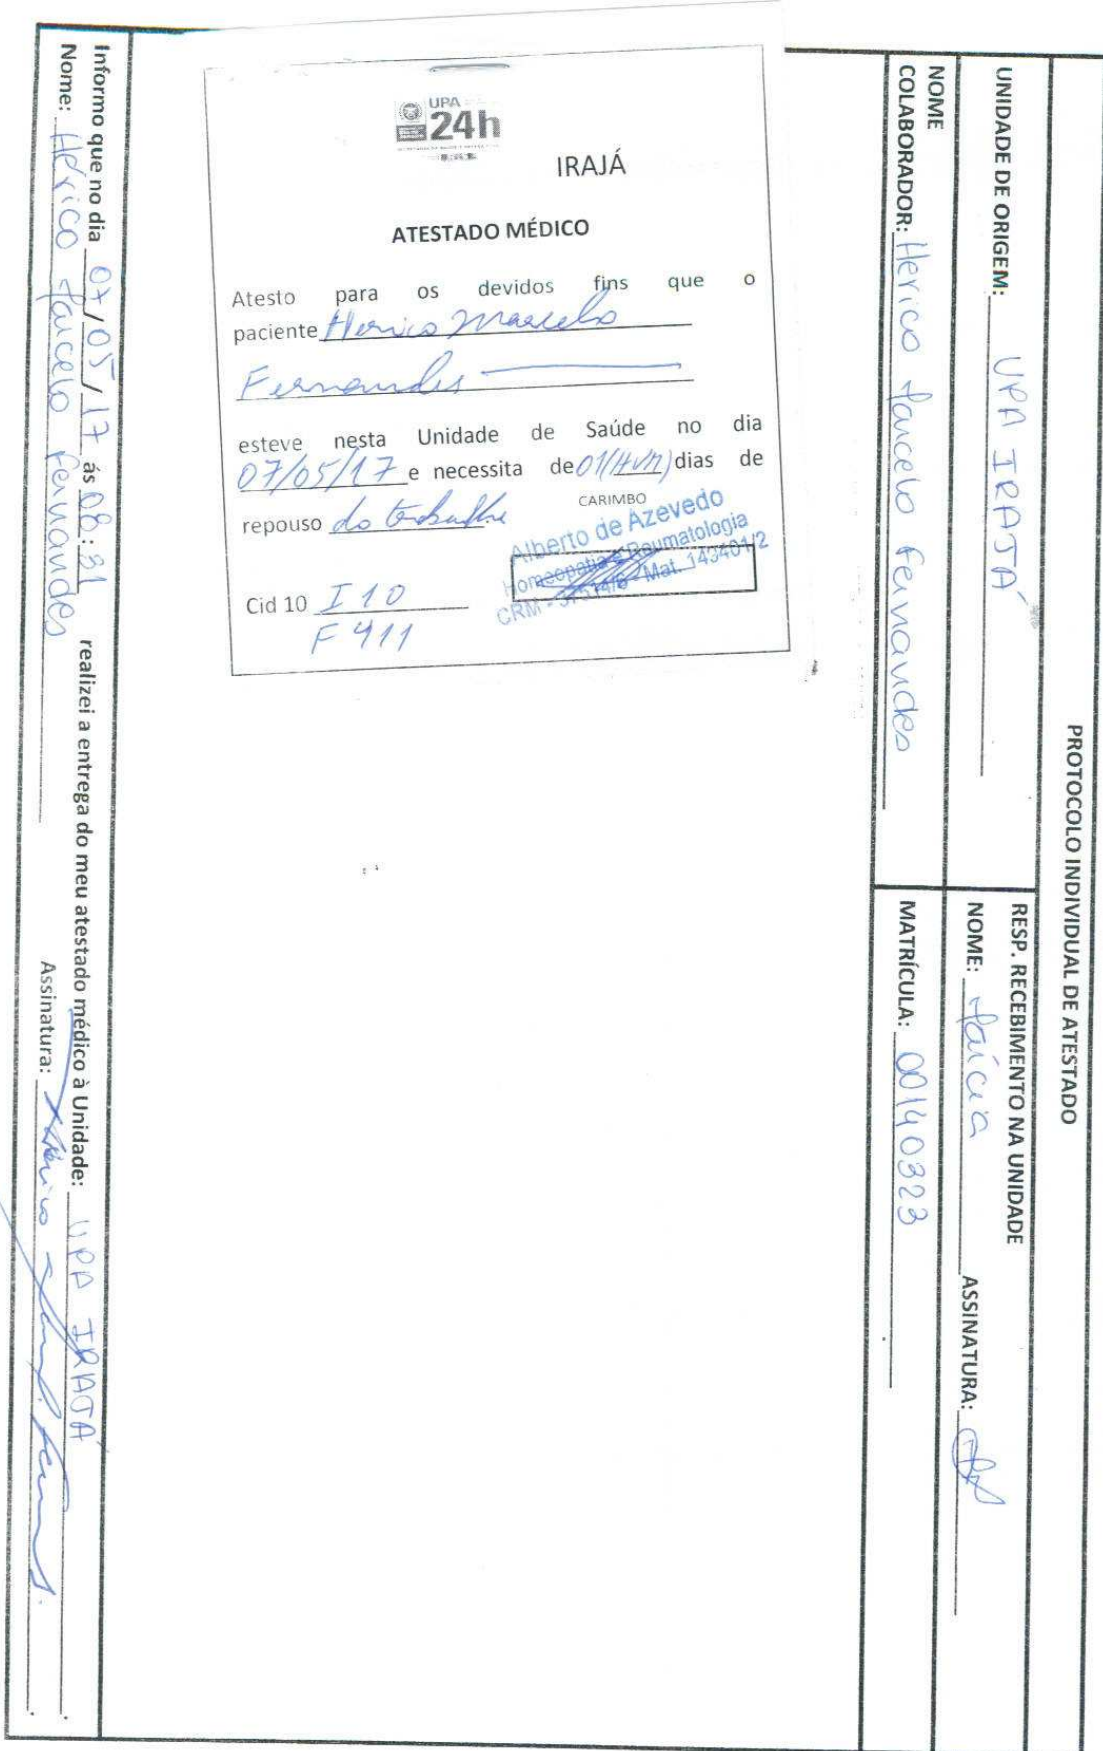 PROTOCOLO INDIVIDUAL DE ATESTADO
UNIDADE DE ORIGEM: UPA IRAJÁ
RESP. RECEBIMENTO NA UNIDADE
NOME: ASSINATURA:
NOME
COLABORADOR: Herico Marcelo Fernandes
MATRÍCULA: 00140323
UPA
24h
IRAJÁ
ATESTADO MÉDICO
Atesto para os devidos fins que o
paciente Herico Marcelo
Fernandes
esteve nesta Unidade de Saúde no dia
07/05/17 e necessita de 01 (Hum) dias de
repouso do trabalho
CARIMBO
Alberto de Azevedo
Homeopatia e Reumatologia
CRM - Mat. 143401/2
Cid 10 I 10
F 411
Informo que no dia 07/05/17 ás 08:31 realizei a entrega do meu atestado médico à Unidade: UPA IRAJÁ
Nome: Hérico Marcelo Fernandes Assinatura: